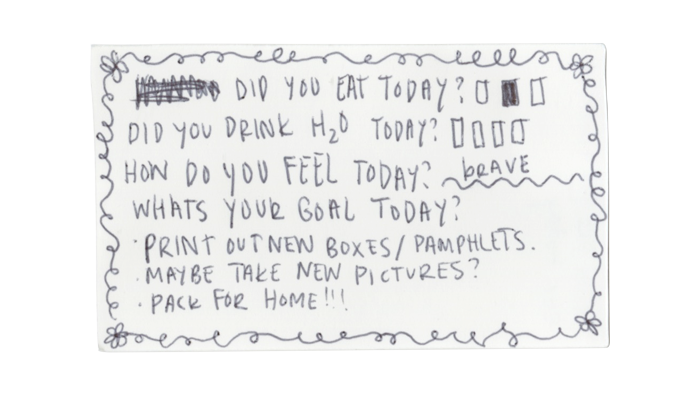 DID YOU EAT TODAY?
DID YOU DRINK H₂O TODAY?
HOW DO YOU FEEL TODAY? brAVE
WHATS YOUR GOAL TODAY?
· PRINT OUT NEW BOXES/PAMPHLETS.
· MAYBE TAKE NEW PICTURES?
· PACK FOR HOME!!!